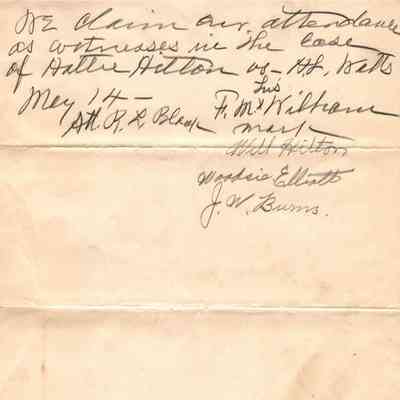 We claim our attendance
as witnesses in the case
of Hattie Hilton vs - H.L. Watts
May 14 -
his
F. M x Kilham
Att. R. L. Black mark
Will Hilton
Woodsie Elliott
J. W. Burns.